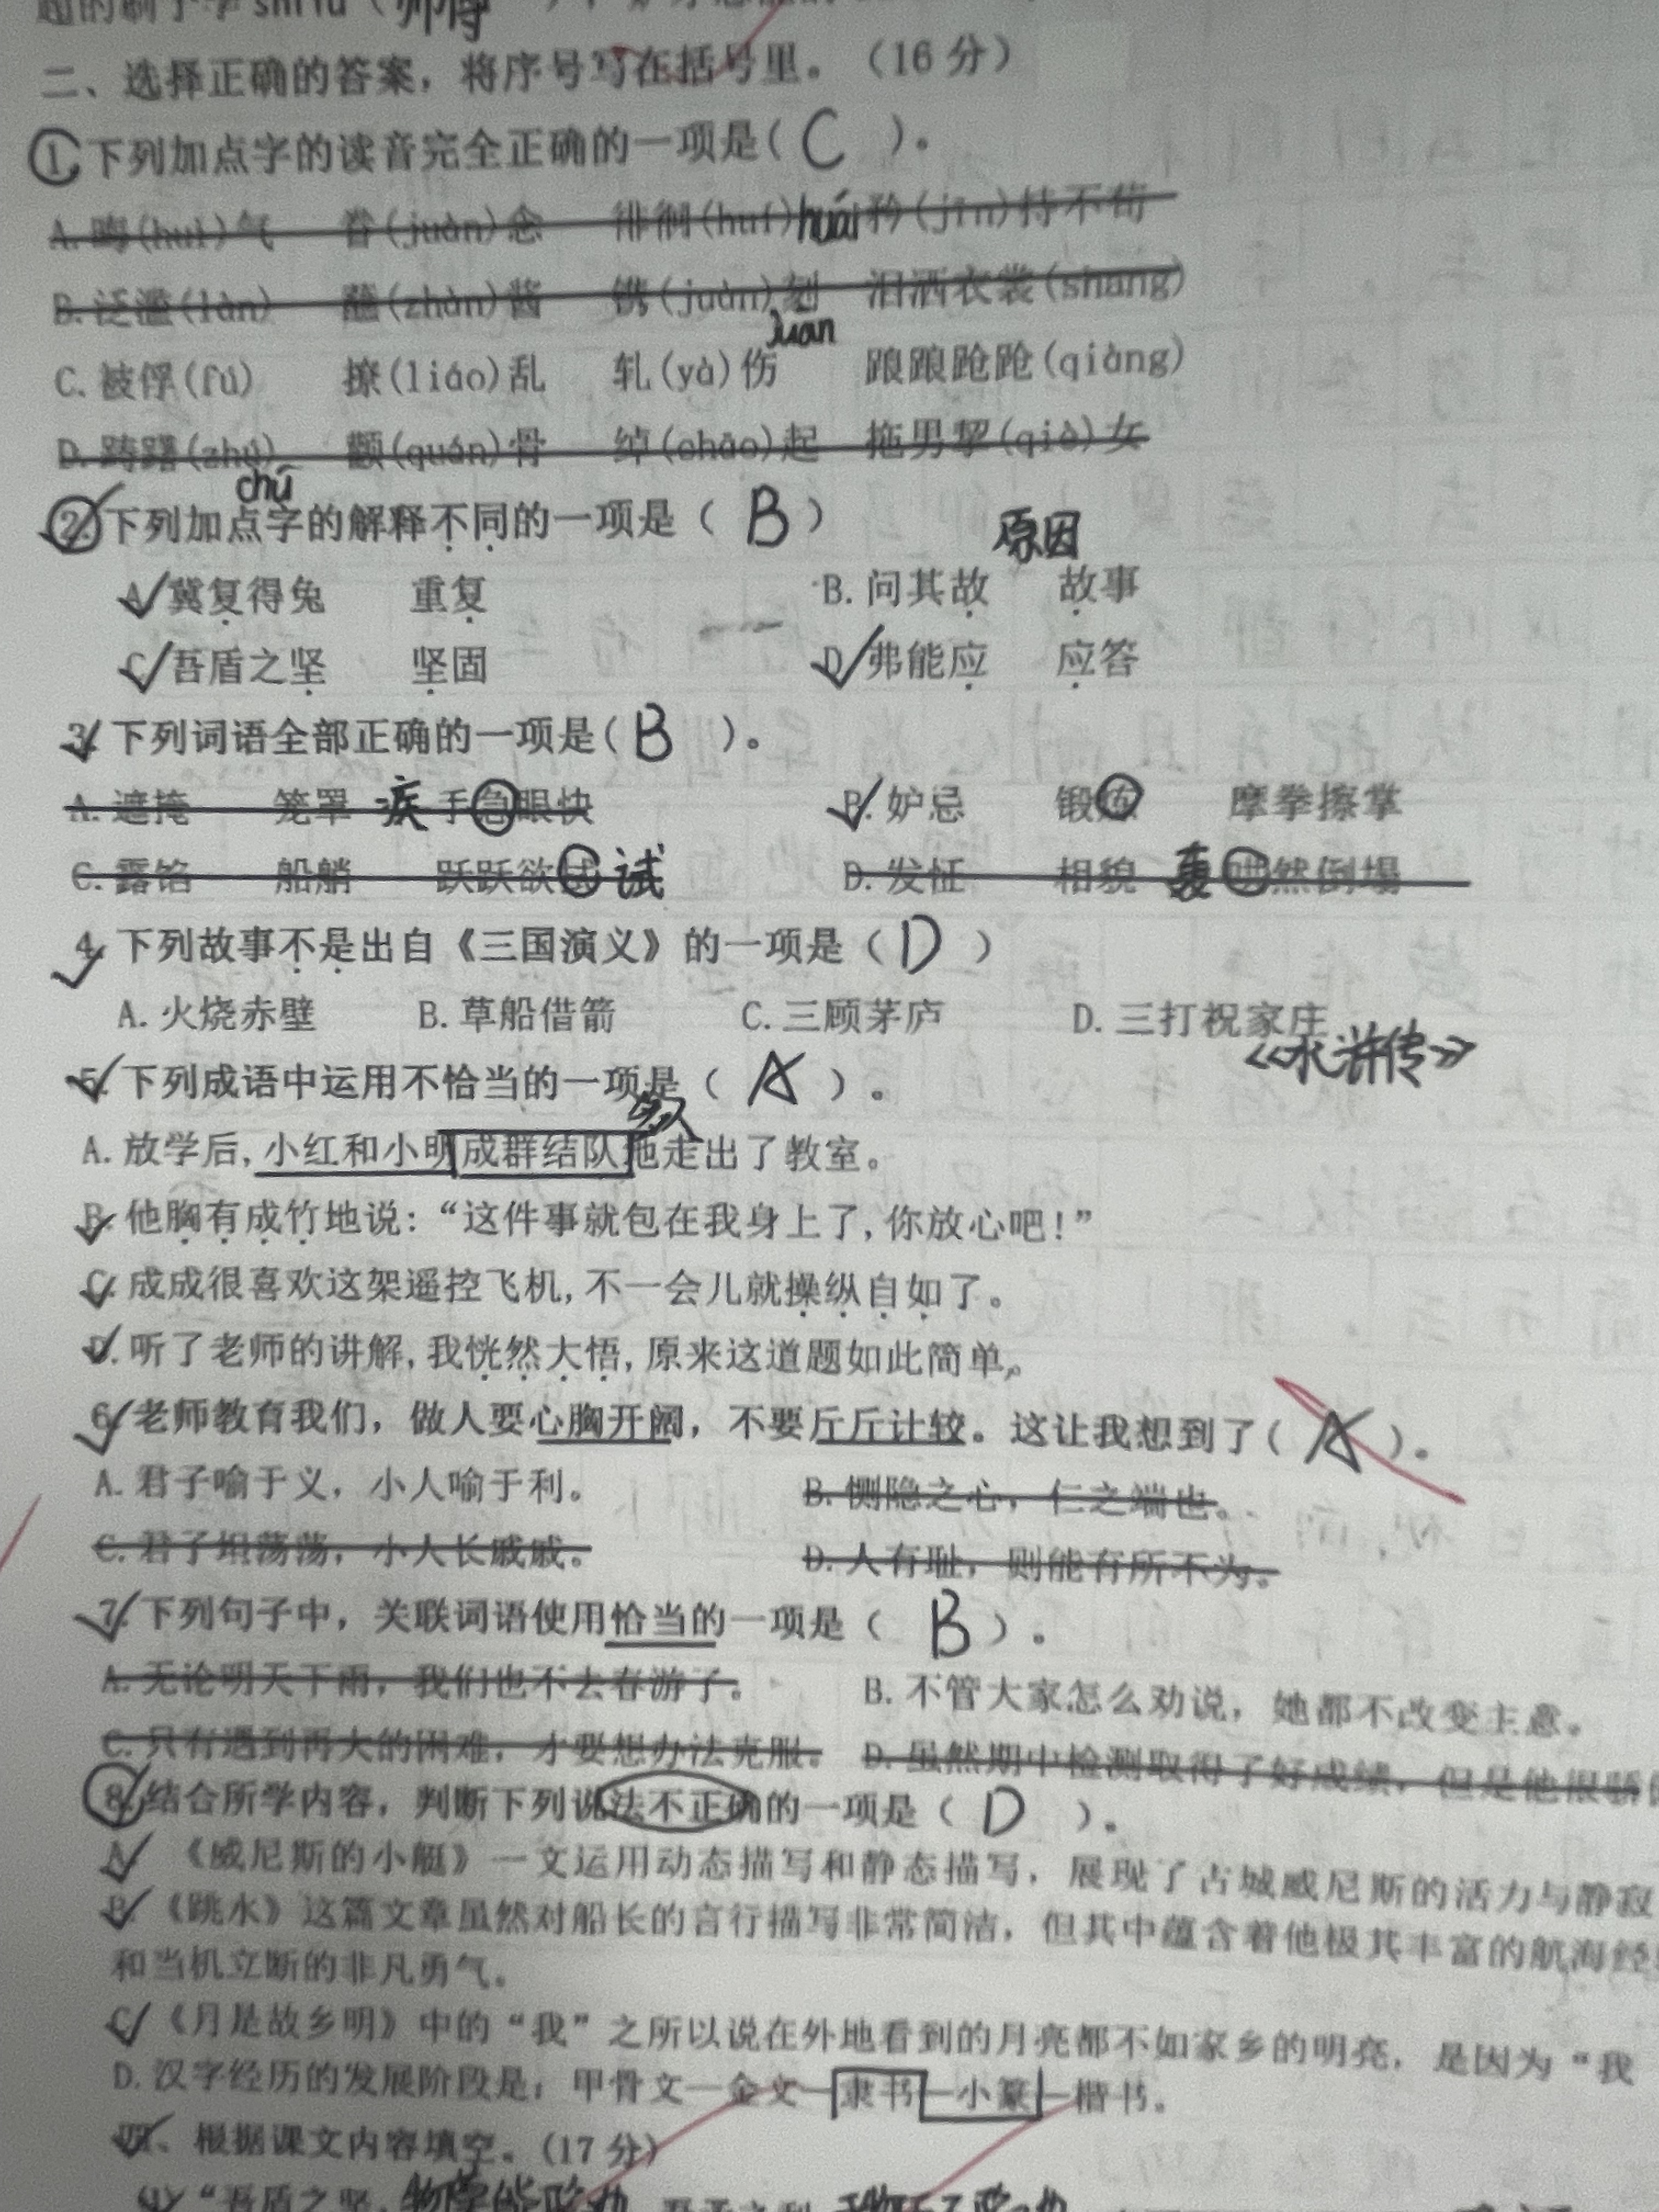 二、选择正确的答案，将序号写在括号里。（16 分）
1.下列加点字的读音完全正确的一项是( C )。
A.晦(huì)气 眷(juàn)念 徘徊(huí)huái 矜(jīn)持不苟
B.泛滥(làn) 蘸(zhàn)酱 镌(juàn)刻 泪洒衣裳(shang)
juān
C.被俘(fú) 撩(liáo)乱 轧(yà)伤 踉踉跄跄(qiàng)
D.踌躇(zhú) 颧(quán)骨 绰(chāo)起 拖男挈(qiè)女
chú
2.下列加点字的解释不同的一项是（ B ）
原因
A.冀复得兔 重复 B.问其故 故事
C.吾盾之坚 坚固 D.弗能应 应答
3.下列词语全部正确的一项是( B )。
A.遮掩 笼罩 疾 手急眼快 B.妒忌 锻炼 摩拳擦掌
C.露馅 船艄 跃跃欲 试 D.发怔 相貌 轰 然倒塌
4.下列故事不是出自《三国演义》的一项是（ D ）
A.火烧赤壁 B.草船借箭 C.三顾茅庐 D.三打祝家庄
《水浒传》
5.下列成语中运用不恰当的一项是（ A ）。
A.放学后,小红和小明成群结队地走出了教室。
B.他胸有成竹地说:“这件事就包在我身上了,你放心吧!”
C.成成很喜欢这架遥控飞机,不一会儿就操纵自如了。
D.听了老师的讲解,我恍然大悟,原来这道题如此简单。
6.老师教育我们，做人要心胸开阔，不要斤斤计较。这让我想到了( A )。
A.君子喻于义，小人喻于利。 B.恻隐之心，仁之端也。
C.君子坦荡荡，小人长戚戚。 D.人有耻，则能有所不为。
7.下列句子中，关联词语使用恰当的一项是（ B ）。
A.无论明天下雨，我们也不去春游了。 B.不管大家怎么劝说，她都不改变主意。
C.只有遇到再大的困难，才要想办法克服。 D.虽然期中检测取得了好成绩，但是他很骄
8.结合所学内容，判断下列说法不正确的一项是（ D ）。
A.《威尼斯的小艇》一文运用动态描写和静态描写，展现了古城威尼斯的活力与静寂
B.《跳水》这篇文章虽然对船长的言行描写非常简洁，但其中蕴含着他极其丰富的航海经
和当机立断的非凡勇气。
C.《月是故乡明》中的“我”之所以说在外地看到的月亮都不如家乡的明亮，是因为“我
D.汉字经历的发展阶段是：甲骨文—金文—隶书—小篆—楷书。
四、根据课文内容填空。(17 分)
“吾盾之坚,物莫能陷也